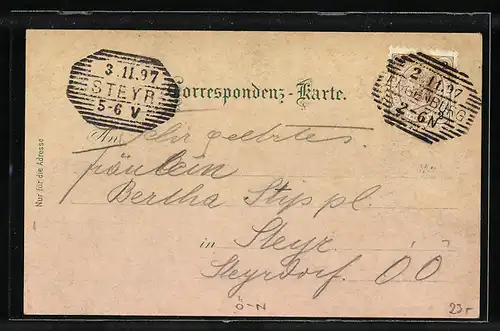 3.11.97
STEYR
5-6 V
2.11.97
LANGENBURG
2-6N
Correspondenz-Karte.
An Sehr geehrtes
Fräulein
Bertha
in Steyr.
Steyrdorf. OÖ
Nur für die Adresse
N-Ö
23